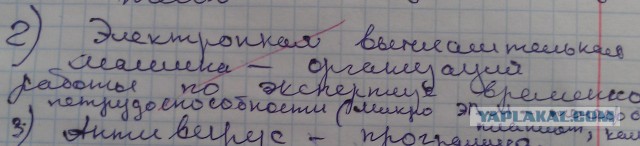 2) Электронная вычислительная
машина – организаций
работы по экспертизе временно
нетрудоспособности (микро
3) Антивирус – программа
YAPLAKAL.COM